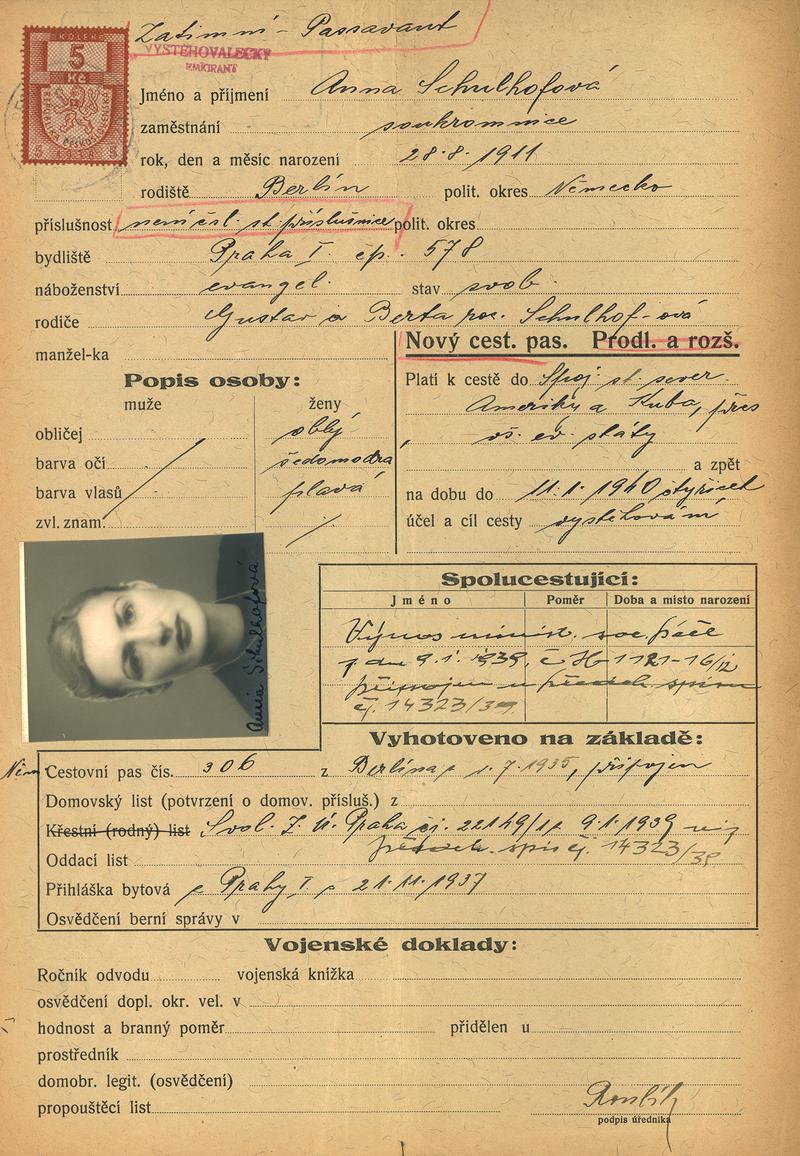 Zatimní - Passavant
KOLEK
5
Kč
VYSTĚHOVALECKÝ
EMIGRANT
Jméno a příjmení Anna Schulhofová
zaměstnání soukromnice
rok, den a měsíc narození 28.8.1911
rodiště Berlín polit. okres Německo
příslušnost není čsl. st. příslušnice polit. okres
bydliště Praha I. čp. 578
náboženství evangel. stav svob.
rodiče Gustav a Berta roz. Schulhof-ová
manžel-ka
Nový cest. pas. Prodl. a rozš.
Popis osoby:
muže ženy
obličej oblý
barva očí šedomodrá
barva vlasů plavá
zvl. znam. /.
Platí k cestě do Spoj. st. sever.
Ameriky a Kuba, přes
vš. ev. státy
a zpět
na dobu do 11.1.1940 čtyřicet
účel a cíl cesty vystěhování
Anna Schulhofová
Spolucestující:
Jméno Poměr Doba a místo narození
Výnos minist. soc. péče
z dne 9.1.1939, č. H-1121-16/12
připojen u předch. spisu
čj. 14323/39
Vyhotoveno na základě:
Něm. Cestovní pas čís. 306 z Berlína z 1.7.1935, připojen
Domovský list (potvrzení o domov. přísluš.) z
Křestní (rodný) list Svol. Z. Ú. Praha čj. 22149/1 z 9.1.1939 viz
předch. spis čj. 14323/39
Oddací list
Přihláška bytová z Prahy I. z 21.11.1937
Osvědčení berní správy v
Vojenské doklady:
Ročník odvodu vojenská knížka
osvědčení dopl. okr. vel. v
hodnost a branný poměr přidělen u
prostředník
domobr. legit. (osvědčení)
propouštěcí list
podpis úředníka